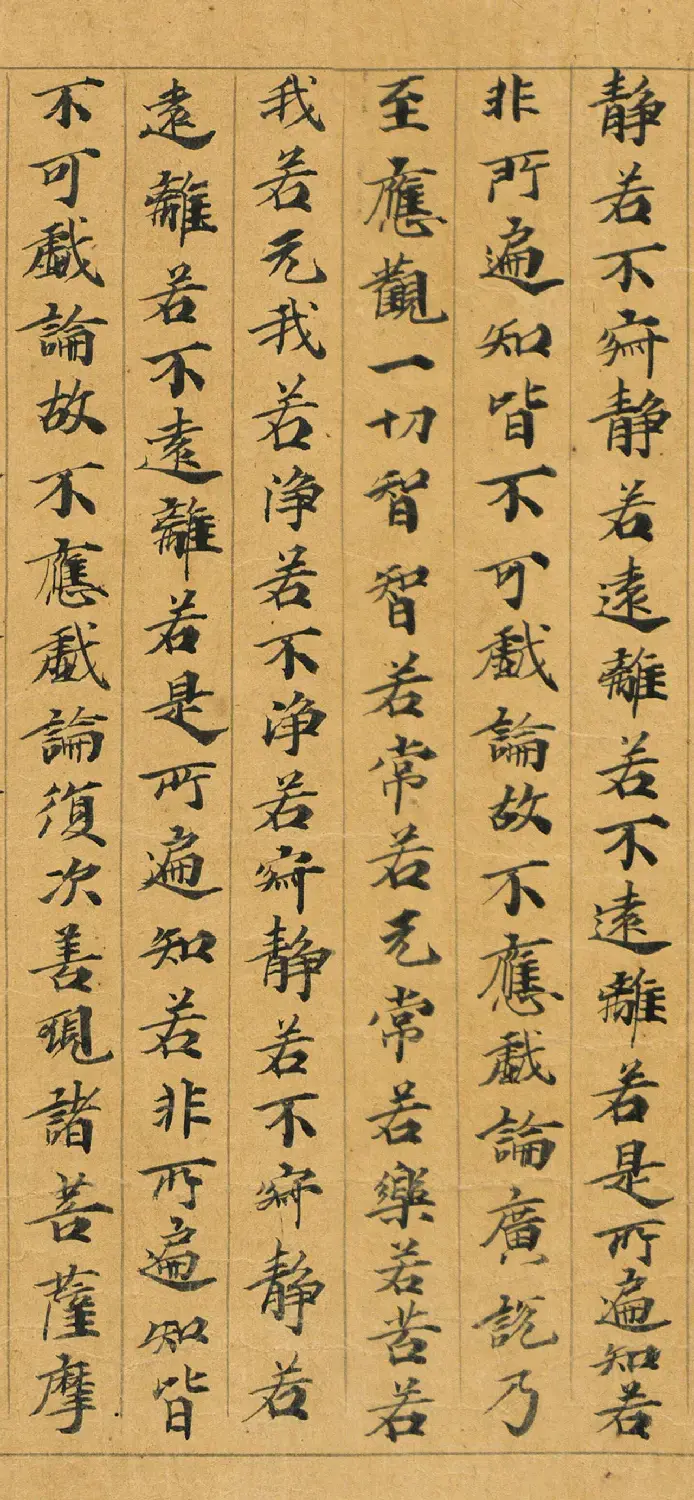 静若不寂静若遠離若不遠離若是所遍知若
非所遍知皆不可戲論故不應戲論廣說乃
至應觀一切智智若常若无常若樂若苦若
我若无我若淨若不淨若寂静若不寂静若
遠離若不遠離若是所遍知若非所遍知皆
不可戲論故不應戲論復次善現諸菩薩摩